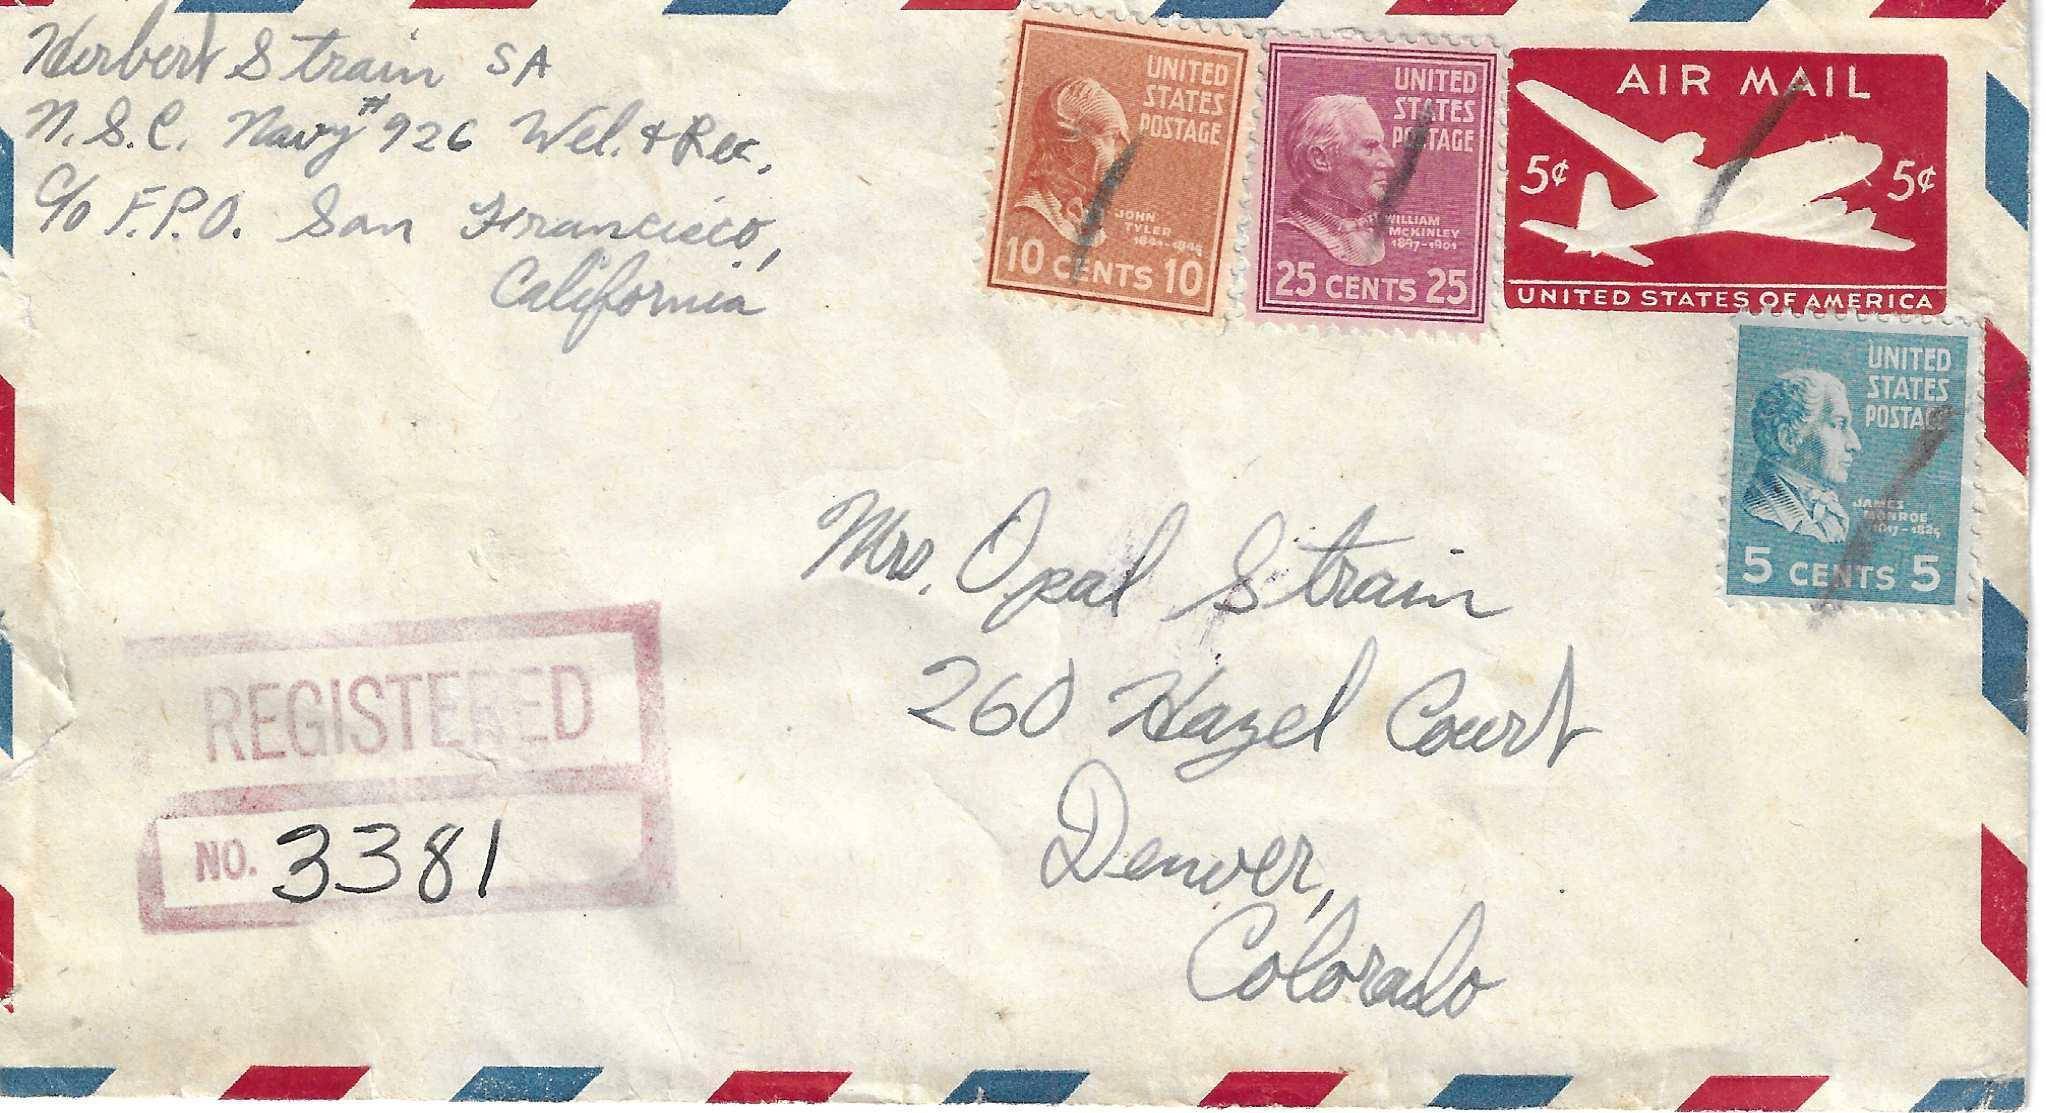 Herbert Strain SA
N.S.C. Navy #926 Wel. & Rec.
c/o F.P.O. San Francisco,
California
UNITED
STATES
POSTAGE
JOHN
TYLER
1841-1845
10 CENTS 10
UNITED
STATES
POSTAGE
WILLIAM
McKINLEY
1897-1901
25 CENTS 25
AIR MAIL
5¢ 5¢
UNITED STATES OF AMERICA
UNITED
STATES
POSTAGE
JAMES
MONROE
1817-1825
5 CENTS 5
Mrs. Opal Strain
260 Hazel Court
Denver,
Colorado
REGISTERED
NO. 3381